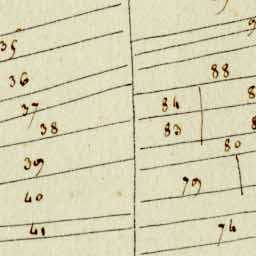 35
36
37
38
39
40
41
88
84
83
80
79
74